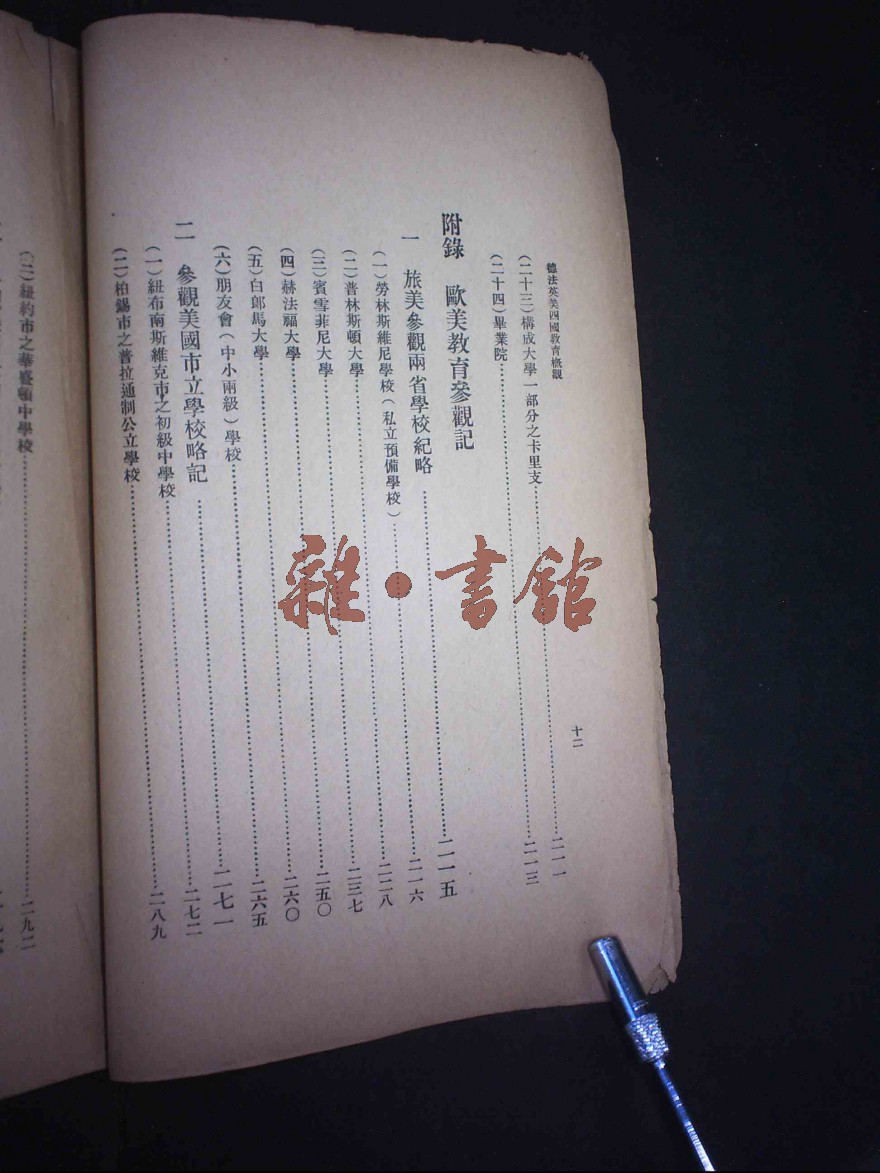 德法英美四國教育概觀
十二
(二十三)構成大學一部分之卡里支……二一一
(二十四)畢業院……二一三
附錄 歐美教育參觀記
一 旅美參觀兩省學校紀略……二一五
(一)勞林斯維尼學校(私立預備學校)……二一六
(二)普林斯頓大學……二二八
(三)賓雪菲尼大學……二三七
(四)赫法福大學……二五〇
(五)白郎馬大學……二六〇
(六)朋友會(中小兩級)學校……二六五
二 參觀美國市立學校略記……二七一
(一)紐布南斯維克市之初級中學校……二七二
(二)柏錫市之普拉通制公立學校……二八九
(三)紐約市之華盛頓中學校……二九二
雜·書館